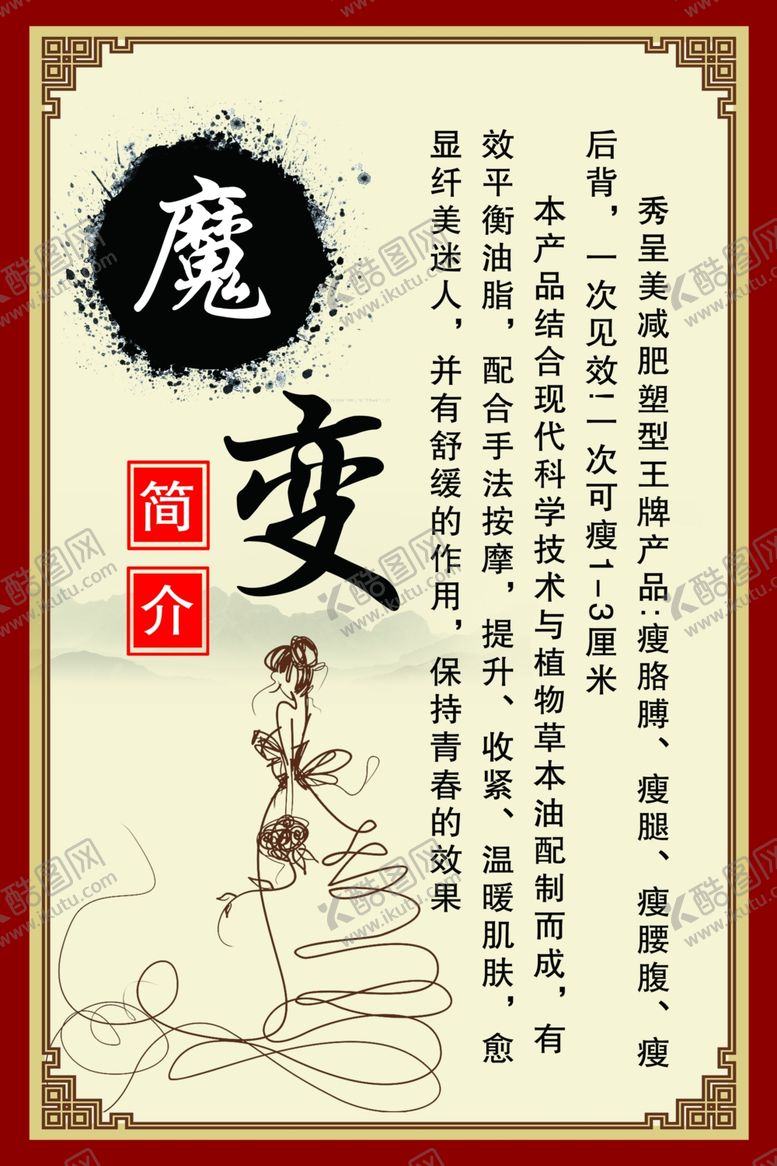 魔
变
简
介
秀呈美减肥塑型王牌产品:瘦胳膊、瘦腿、瘦腰腹、瘦
后背，一次见效!一次可瘦1-3厘米
本产品结合现代科学技术与植物草本油配制而成，有
效平衡油脂，配合手法按摩，提升、收紧、温暖肌肤，愈
显纤美迷人，并有舒缓的作用，保持青春的效果
酷图网
www.ikutu.com